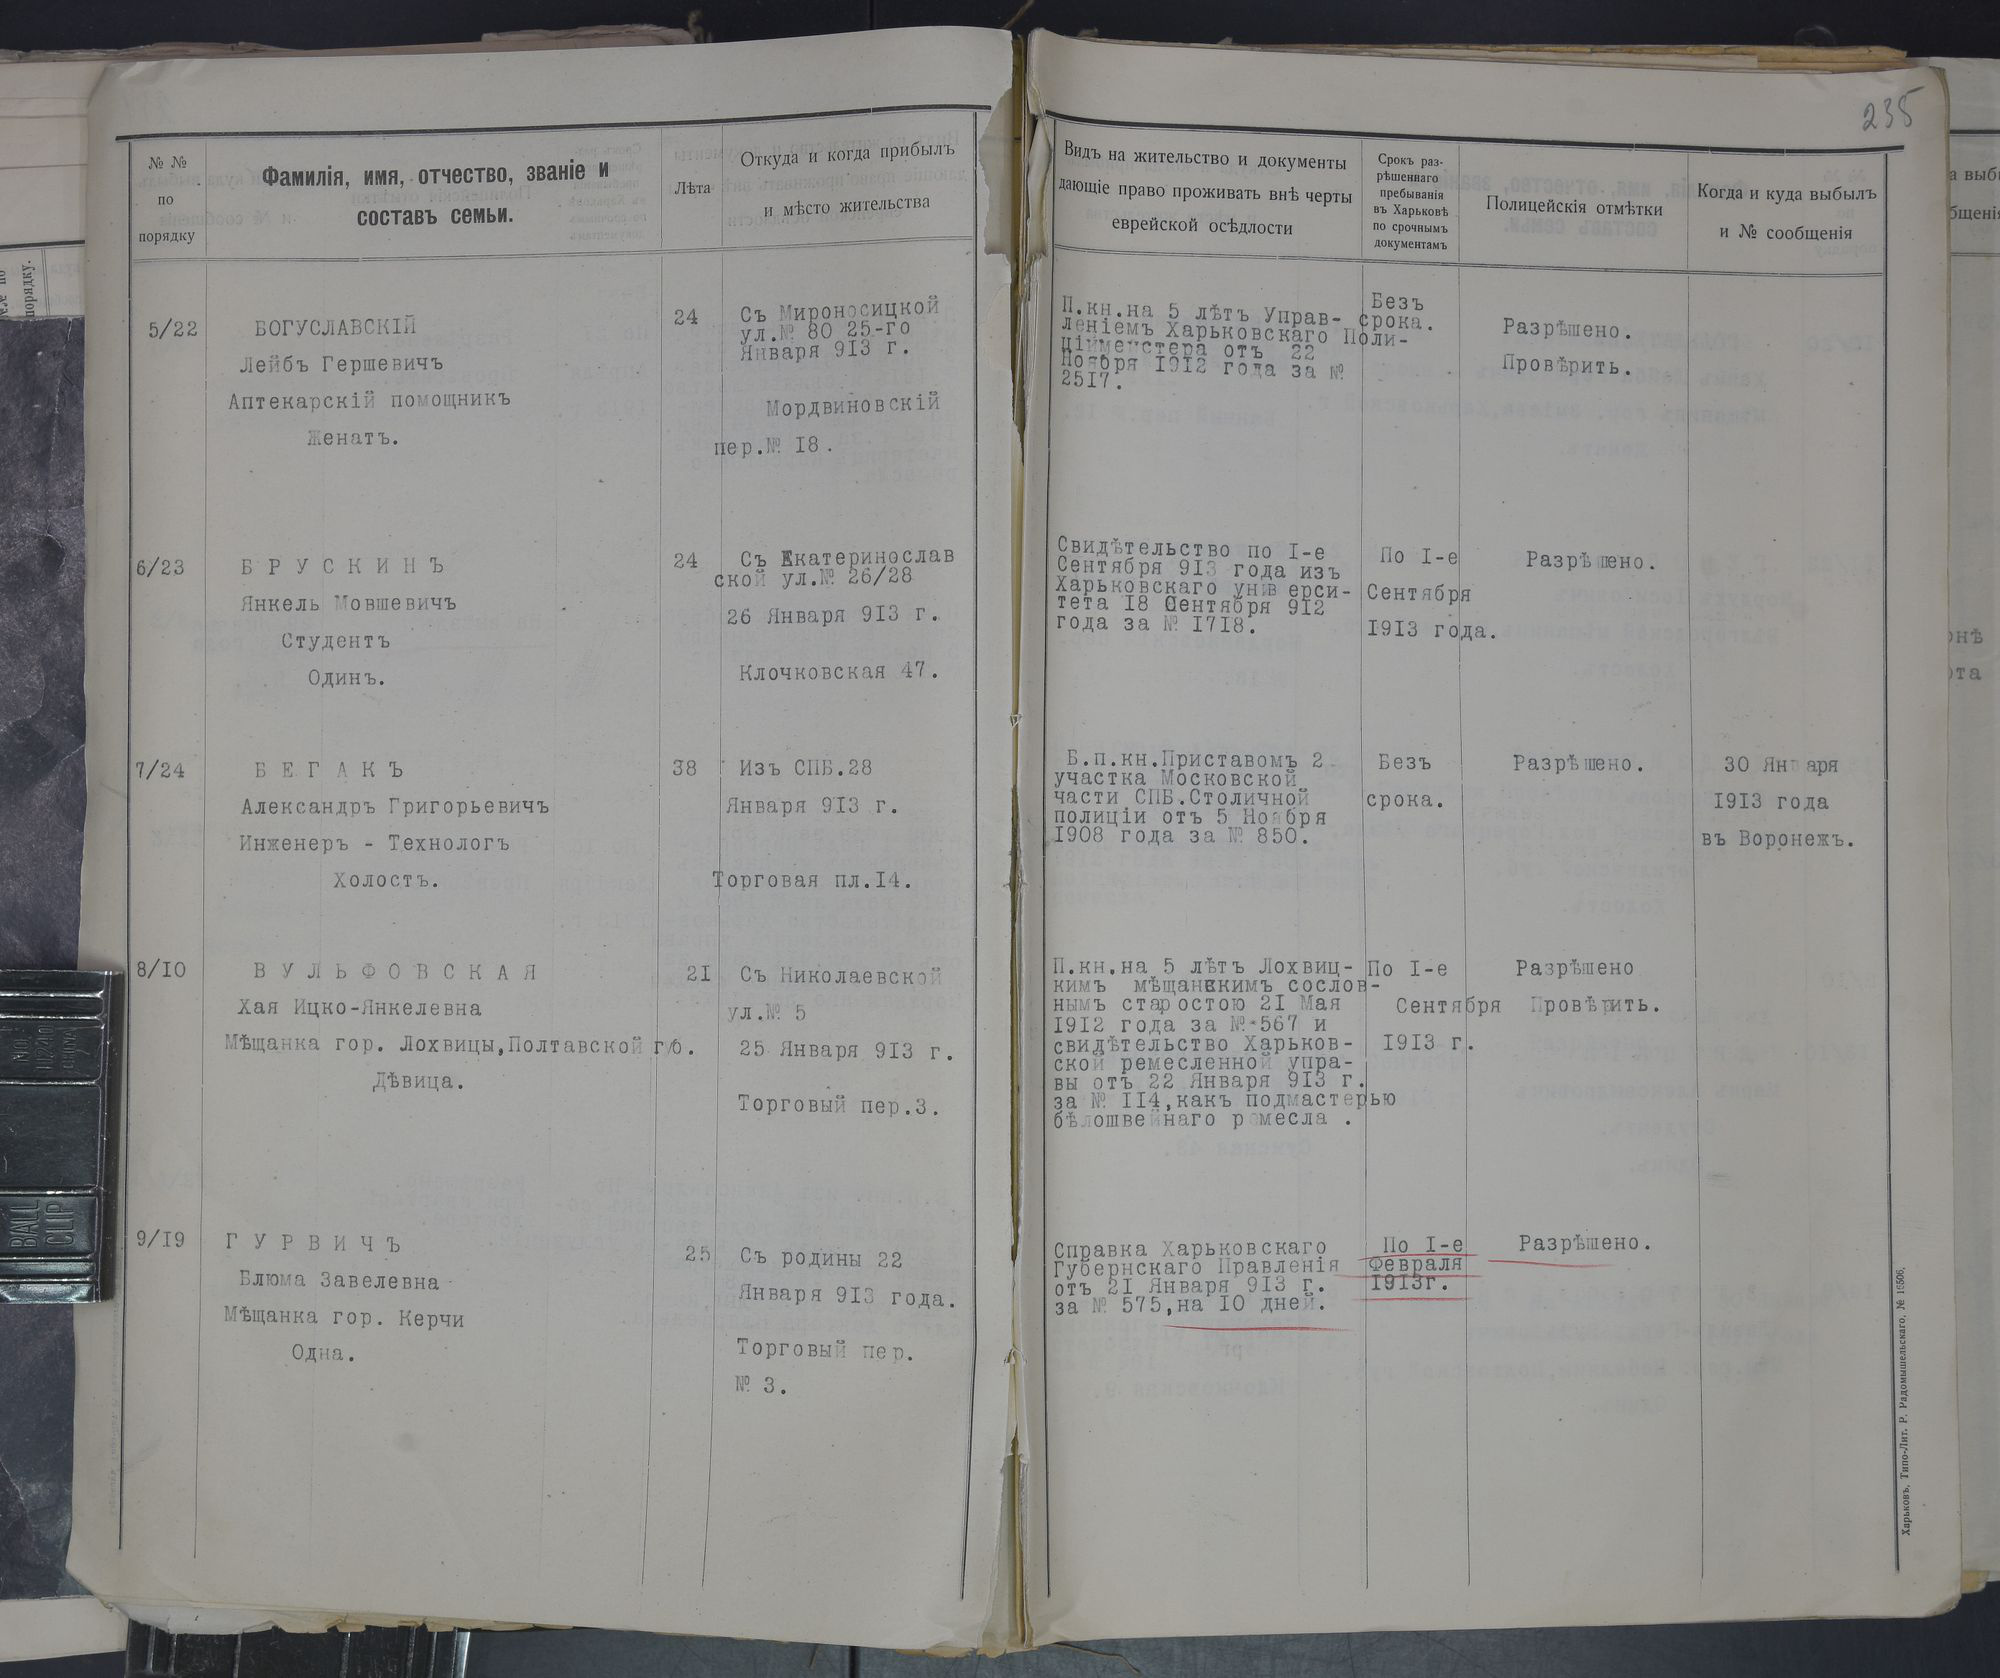 235
№ №
по
порядку
Фамилія, имя, отчество, званіе и
составъ семьи.
Лѣта
Откуда и когда прибылъ
и мѣсто жительства
Видъ на жительство и документы
дающіе право проживать внѣ черты
еврейской осѣдлости
Срокъ раз-
рѣшеннаго
пребыванія
въ Харьковѣ
по срочнымъ
документамъ
Полицейскія отмѣтки
Когда и куда выбылъ
и № сообщенія
5/22
БОГУСЛАВСКІЙ
Лейбъ Гершевичъ
Аптекарскій помощникъ
Женатъ.
24
Съ Мироносицкой
ул.№ 80 25-го
Января 913 г.
Мордвиновскій
пер.№ I8.
П.кн.на 5 лѣтъ Управ-
леніемъ Харьковскаго Поли-
ційместера отъ 22
Ноября I9I2 года за №
25I7.
Безъ
срока.
Разрѣшено.
Провѣрить.
6/23
Б Р У С К И Н Ъ
Янкель Мовшевичъ
Студентъ
Одинъ.
24
Съ Екатеринослав
ской ул.№ 26/28
26 Января 9I3 г.
Клочковская 47.
Свидѣтельство по I-е
Сентября 9I3 года изъ
Харьковскаго унив ерси-
тета I8 Сентября 9I2
года за № I7I8.
По I-е
Сентября
I9I3 года.
Разрѣшено.
7/24
Б Е Г А К Ъ
Александръ Григорьевичъ
Инженеръ - Технологъ
Холостъ.
38
Изъ СПБ.28
Января 9I3 г.
Торговая пл.I4.
Б.п.кн.Приставомъ 2
участка Московской
части СПБ.Столичной
полиціи отъ 5 Ноября
I908 года за № 850.
Безъ
срока.
Разрѣшено.
30 Января
I9I3 года
въ Воронежъ.
8/I0
В У Л Ь Ф О В С К А Я
Хая Ицко-Янкелевна
Мѣщанка гор. Лохвицы,Полтавской губ.
Дѣвица.
2I
Съ Николаевской
ул.№ 5
25 Января 9I3 г.
Торговый пер.3.
П.кн.на 5 лѣтъ Лохвиц-
кимъ мѣщанскимъ сослов-
нымъ старостою 2I Мая
I9I2 года за № 567 и
свидѣтельство Харьков-
ской ремесленной упра-
вы отъ 22 Января 9I3 г.
за № II4,какъ подмастерью
бѣлошвейнаго ремесла .
По I-е
Сентября
I9I3 г.
Разрѣшено
Провѣрить.
9/I9
Г У Р В И Ч Ъ
Блюма Завелевна
Мѣщанка гор. Керчи
Одна.
25
Съ родины 22
Января 9I3 года.
Торговый пер.
№ 3.
Справка Харьковскаго
Губернскаго Правленія
отъ 2I Января 9I3 г.
за № 575,на I0 дней.
По I-е
Февраля
I9I3г.
Разрѣшено.
Харьковъ, Типо-Лит. Р. Радомышельскаго, № 15506.
BALL
CLIP